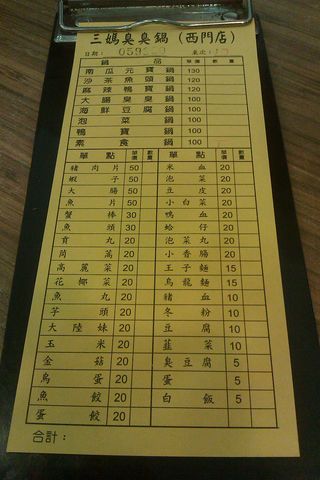 三媽臭臭鍋(西門店)
日期： 059 桌次：
鍋品 單價 數量
南瓜元寶鍋 130
沙茶魚頭鍋 120
麻辣鴨寶鍋 120
大腸臭臭鍋 100
海鮮豆腐鍋 100
泡菜鍋 100
鴨寶鍋 100
素食鍋 100
單點 單價 數量 單點 單價 數量
豬肉片 50 米血 20
蝦子 50 泡菜 20
大腸 50 豆皮 20
魚片 50 小白菜 20
蟹棒 30 鴨血 20
魚頭 30 蛤仔 20
貢丸 20 泡菜丸 20
茼萵 20 小香腸 20
高麗菜 20 王子麵 15
花椰菜 20 烏龍麵 15
魚丸 20 豬血 10
芋頭 20 冬粉 10
大陸妹 20 豆腐 10
玉米 20 韮菜 10
金菇 20 臭豆腐 5
鳥蛋 20 蛋 5
魚餃 20 白飯 5
蛋餃 20
合計：